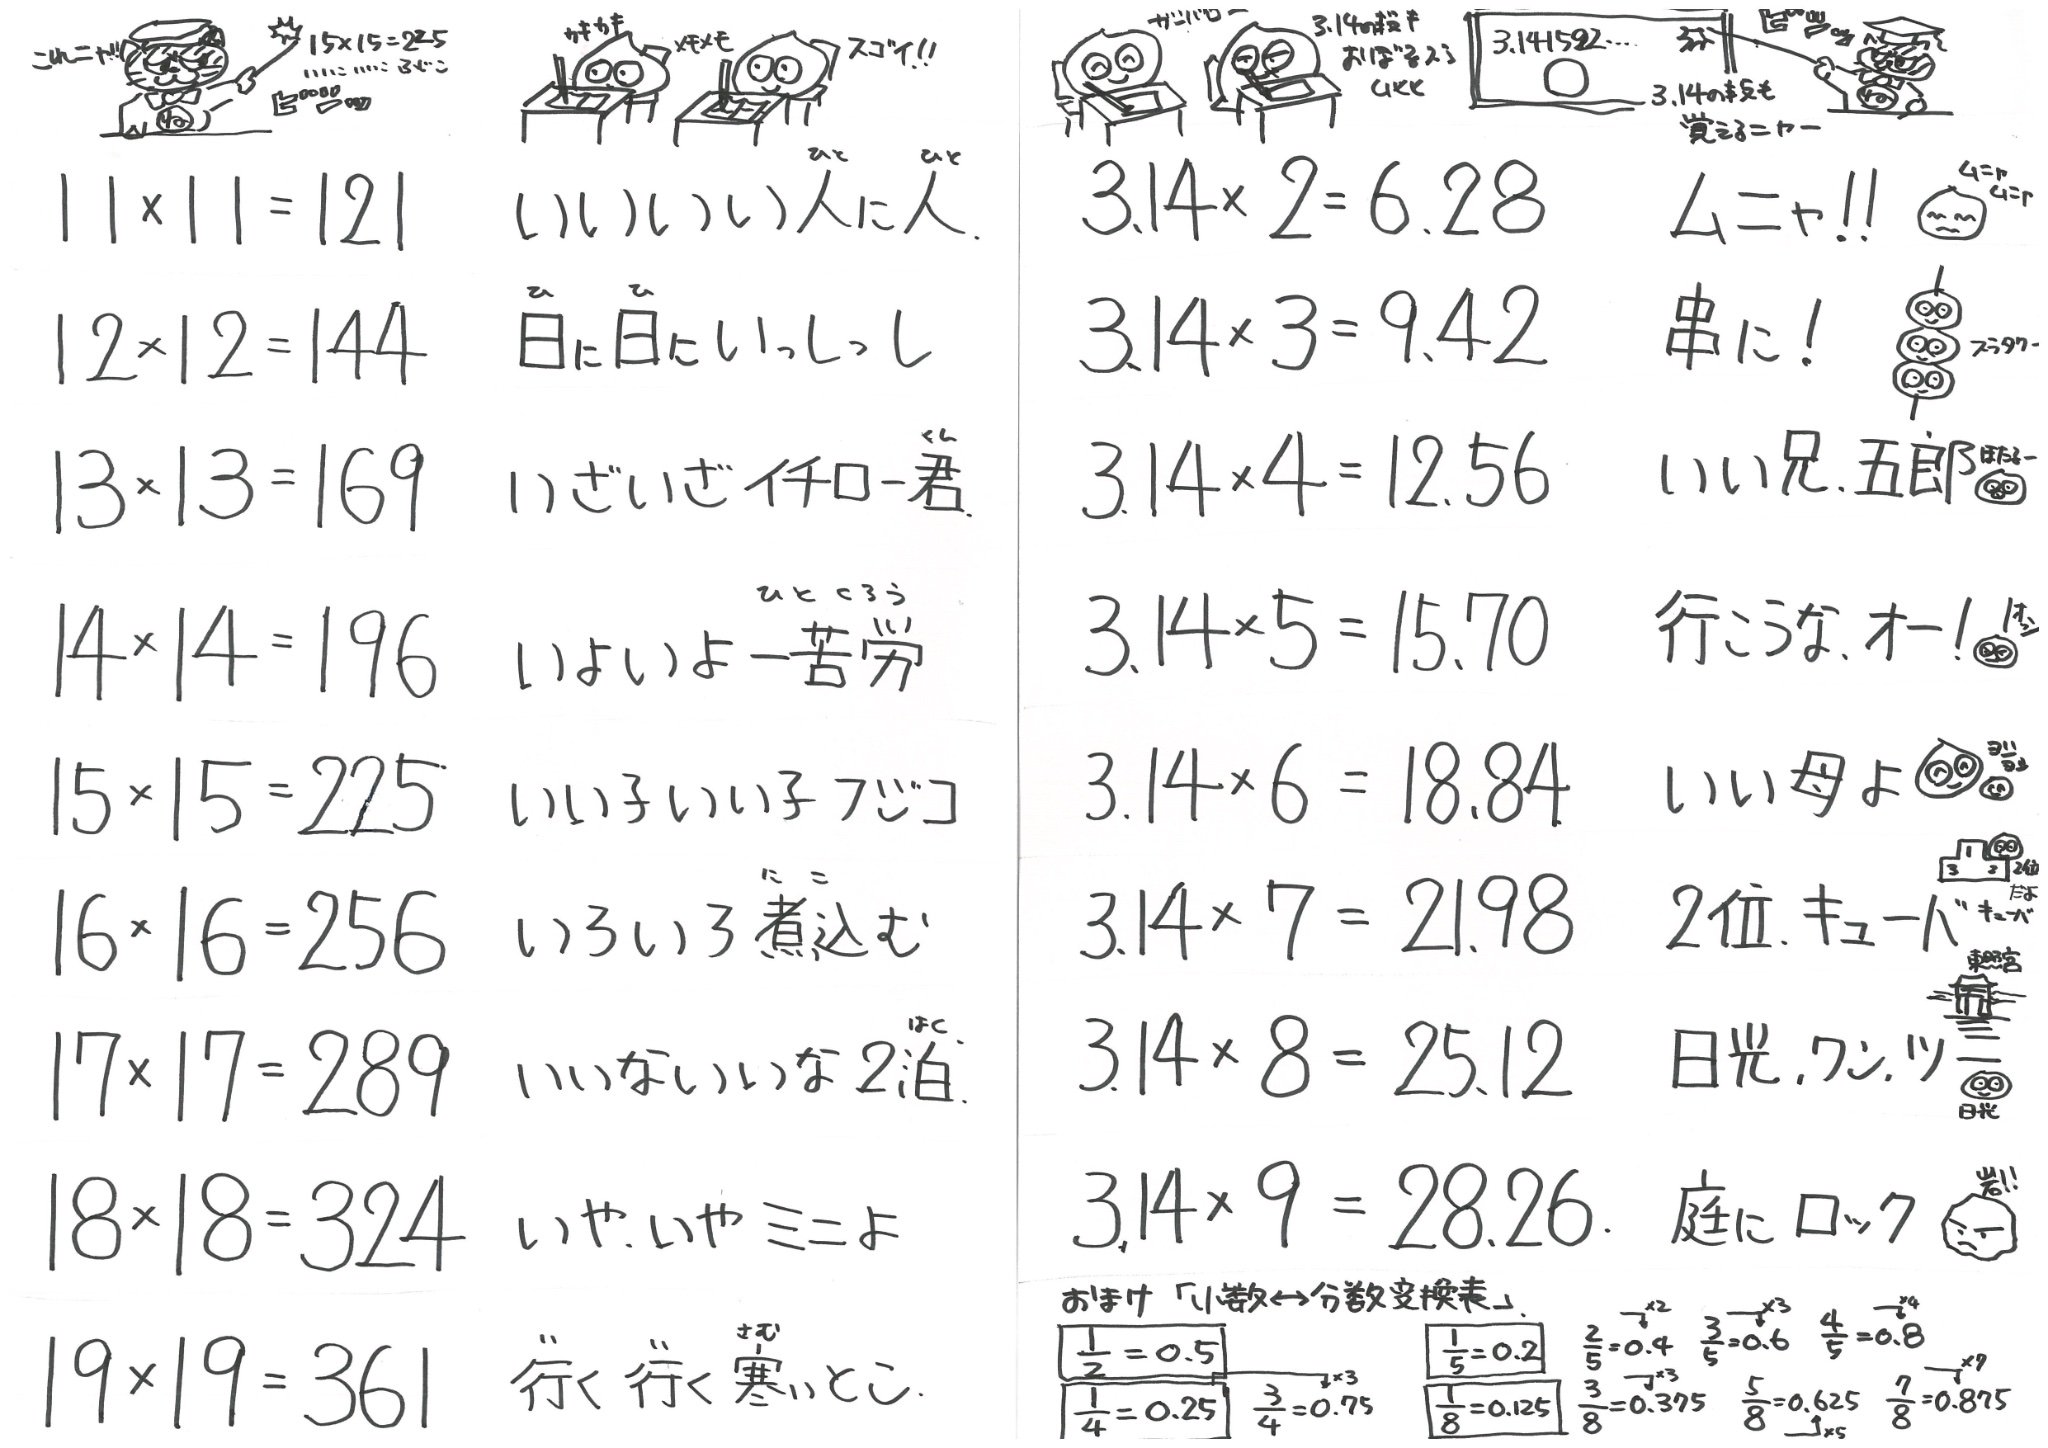 これニャ!!
15×15=225
いいこ いいこ ふじこ
ビシッ
カキカキ
メモメモ
スゴイ!!
11×11=121 いいいい人に人.
ひと ひと
12×12=144 日に日にいっしっし
ひ ひ
13×13=169 いざいざイチロー君.
くん
14×14=196 いよいよ一苦労
ひとくろう
15×15=225 いい子いい子フジコ
16×16=256 いろいろ煮込む
に こ
17×17=289 いいないいな2泊.
はく
18×18=324 いや.いやミニよ
19×19=361 行く行く寒いとこ.
い い さむ
ガンバロー
3.14の段も
おぼえるえら
3.141592...
3.14の段も
覚えるニャー
3.14×2=6.28 ムニャ!!
ムニャ
ムニャ
3.14×3=9.42 串に!
3.14×4=12.56 いい兄.五郎
3.14×5=15.70 行こうな.オー!
3.14×6=18.84 いい母よ
3.14×7=21.98 2位.キューバ
1
3 2
2位
だよ
キューバ
3.14×8=25.12 日光.ワン.ツー
東照宮
日光
3.14×9=28.26. 庭にロック
岩!!
おまけ「小数↔分数変換表」.
1/2=0.5
1/4=0.25 3/4=0.75 ×3
1/5=0.2 2/5=0.4 ×2 3/5=0.6 ×3 4/5=0.8 ×4
1/8=0.125 3/8=0.375 ×3 5/8=0.625 ×5 7/8=0.875 ×7